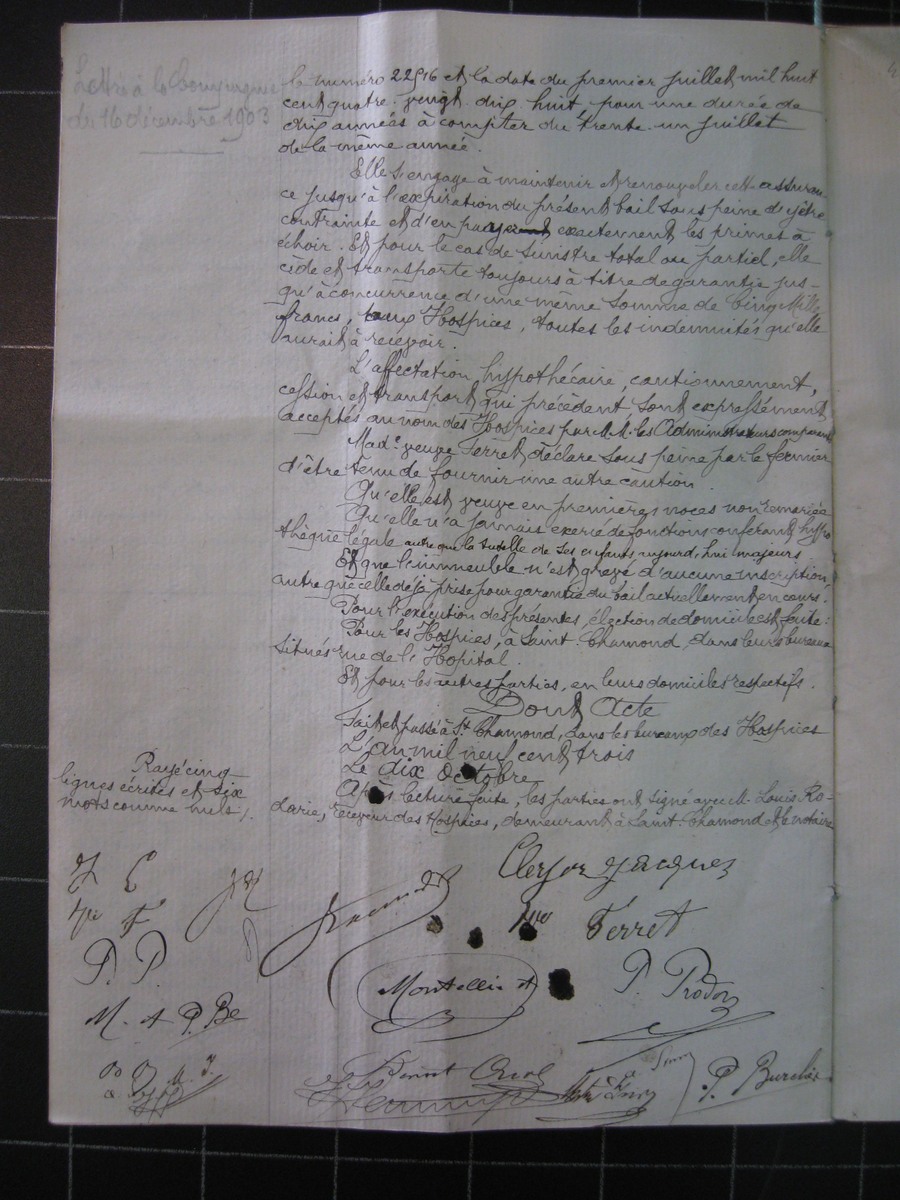 Lettre à la Compagnie
du 16 décembre 1903
le numéro 22516 et la date du premier juillet mil huit
cent quatre-vingt-dix-huit, pour une durée de
dix années à compter du trente-un juillet
de la même année.
Elle s'engage à maintenir et renouveler cette assuran-
ce jusqu'à l'expiration du présent bail sous peine d'y être
contrainte et d'en payer exactement les primes à
échoir. Et pour le cas de sinistre total ou partiel, elle
cède et transporte toujours à titre de garantie jus-
qu'à concurrence d'une même somme de Cinq Mille
francs, aux Hospices, toutes les indemnités qu'elle
aurait à recevoir.
L'affectation hypothécaire, cautionnement,
cession et transport qui précèdent sont expressément
acceptés au nom des Hospices par M.M. les Administrateurs comparants
Mad.e veuve Ferret déclare sous peine par le fermier
d'être tenu de fournir une autre caution.
Qu'elle est veuve en premières noces non remariée
Qu'elle n'a jamais exercé de fonctions conférant hypo
thèque légale autre que la tutelle de ses enfants aujourd'hui majeurs
Et que l'immeuble n'est grevé d'aucune inscription
autre que celle déjà prise pour garantie du bail actuellement en cours.
Pour l'exécution des présentes, élection de domicile est faite:
Pour les Hospices, à Saint-Chamond, dans leurs bureaux
situés rue de l'Hopital.
Et pour les autres parties, en leurs domiciles respectifs.
Dont Acte
Fait et passé à St Chamond, dans les bureaux des Hospices
L'an mil neuf cent trois
Le dix Octobre
Après lecture faite, les parties ont signé avec M. Louis Ro-
larie, receveur des Hospices, demeurant à Saint-Chamond et le notaire
Rayé cinq
lignes écrites et six
mots comme nuls ;.
Jacques
Ve Ferret
P. P.
Montellier A
P. Prodon
M. A P. Be
Benoit
P. Burelier